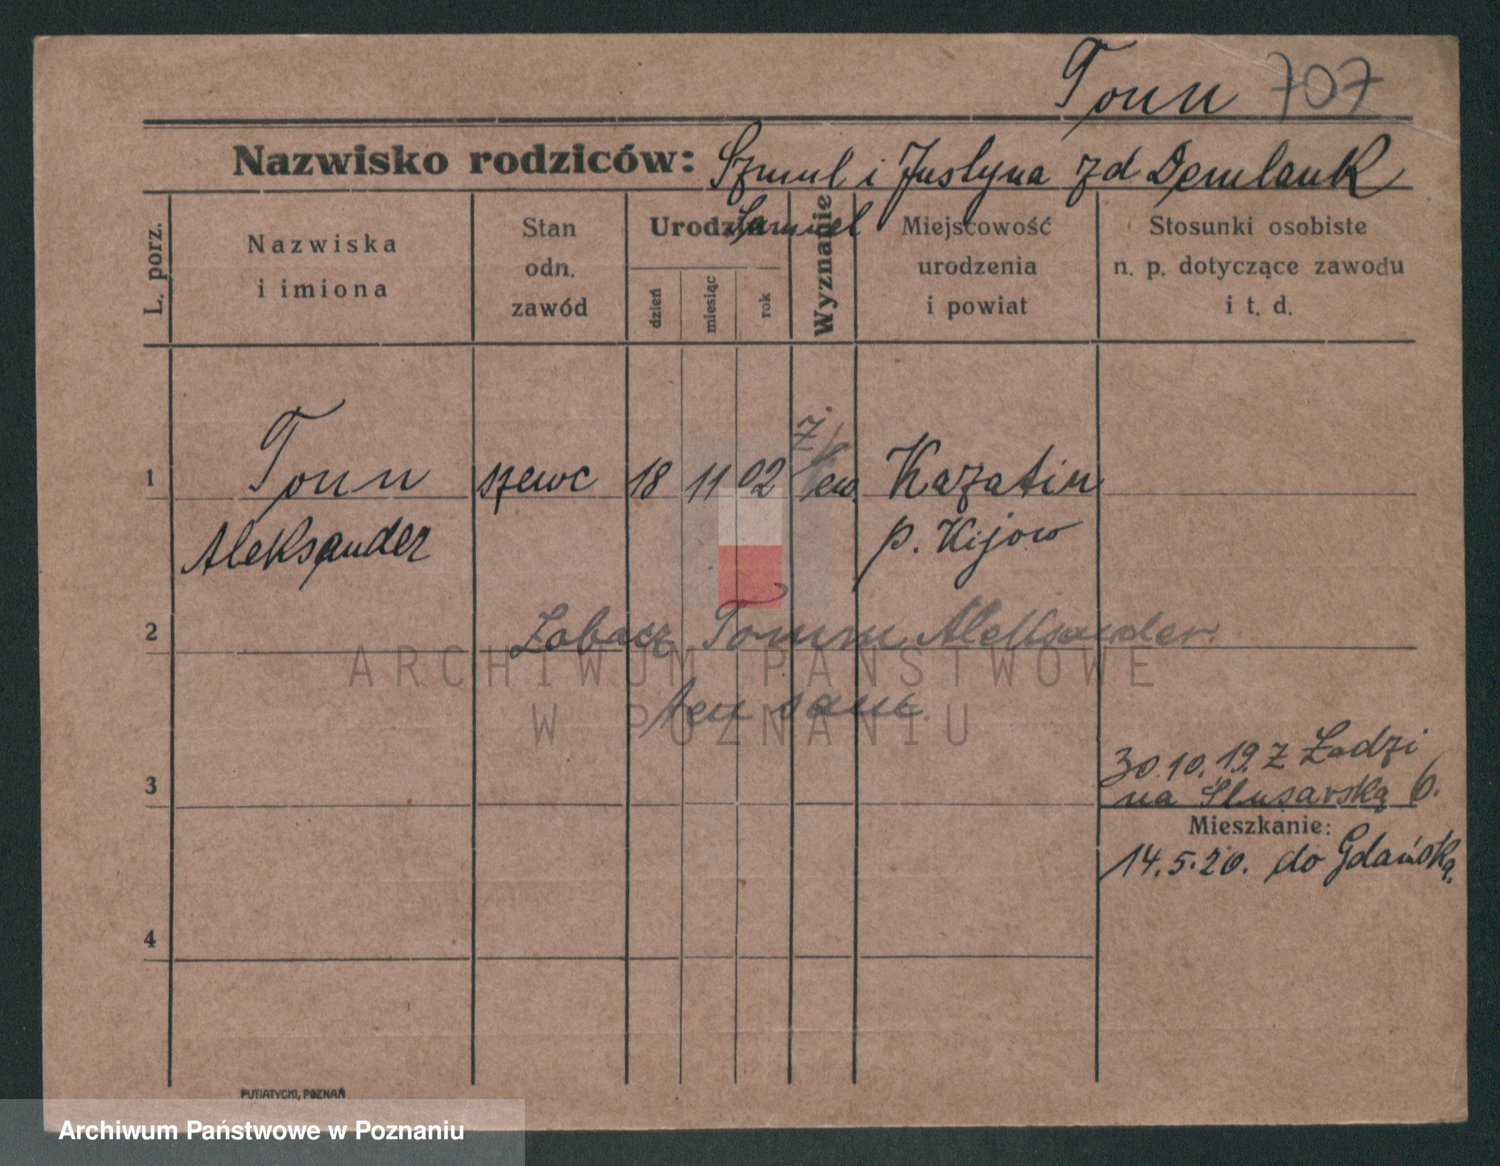 Tonn 707
Nazwisko rodziców: Szmul i Justyna zd Demlank
Samuel
L. porz.
Nazwiska
i imiona
Stan
odn.
zawód
Urodzin
dzień
miesiąc
rok
Wyznanie
Miejscowość
urodzenia
i powiat
Stosunki osobiste
n. p. dotyczące zawodu
i t. d.
1 Tonn szewc 18 11 02 ew Kazatin
Aleksander p. Kijow
2 Zobacz Tomm Aleksander.
ten sam.
30.10.19. z Łodzi
3 na Ślusarską 6.
Mieszkanie:
14.5.20. do Gdańska.
4
PUTIATYCKI, POZNAŃ
ARCHIWUM PAŃSTWOWE
W POZNANIU
Archiwum Państwowe w Poznaniu